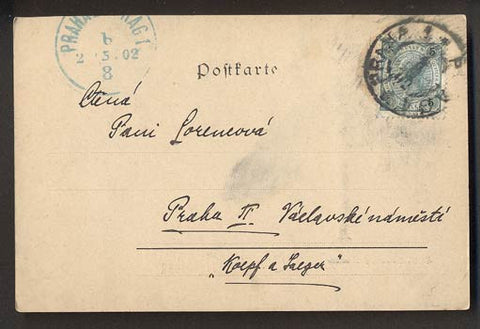 PRAHA PRAG 1
2 5 02
8
Postkarte
PRAHA 1
Ctěná
Paní Lorencová
Praha II. Václavské náměstí
„Koepf a Jaeger"